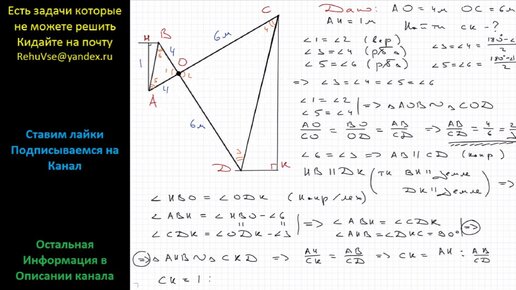 Есть задачи которые
не можете решить
Кидайте на почту
RehuVse@yandex.ru
Ставим лайки
Подписываемся на
Канал
Остальная
Информация в
Описании канала
Дано: АО = 4м ОС = 6м
АН = 1м Найти СК - ?
∠1 = ∠2 (вер)
∠3 = ∠4 (рδδ)
∠5 = ∠6 (рδδ)
∠3=∠4=
∠5=∠6=
∠1 = ∠2
∠5 = ∠4 => △AOB ~ △COD
AO/CO = BO/OD = AB/CD => AB/CD = 4/6 = 2/3
∠6 = ∠3 => AB || CD (накр)
HB || DK (тк BH || земле DK || земле) =>
∠HBO = ∠ODK (накр/леж)
∠ABH = ∠HBO - ∠6
∠CDK = ∠ODK - ∠3 => ∠ABH = ∠CDK
∠AHB = ∠DKC = 90° =>
=> △AHB ~ △CKD => AH/CK = AB/CD => CK = AH : AB/CD
CK = 1 :
H
B
C
1
4
6м
O
A
4
6м
Д
K